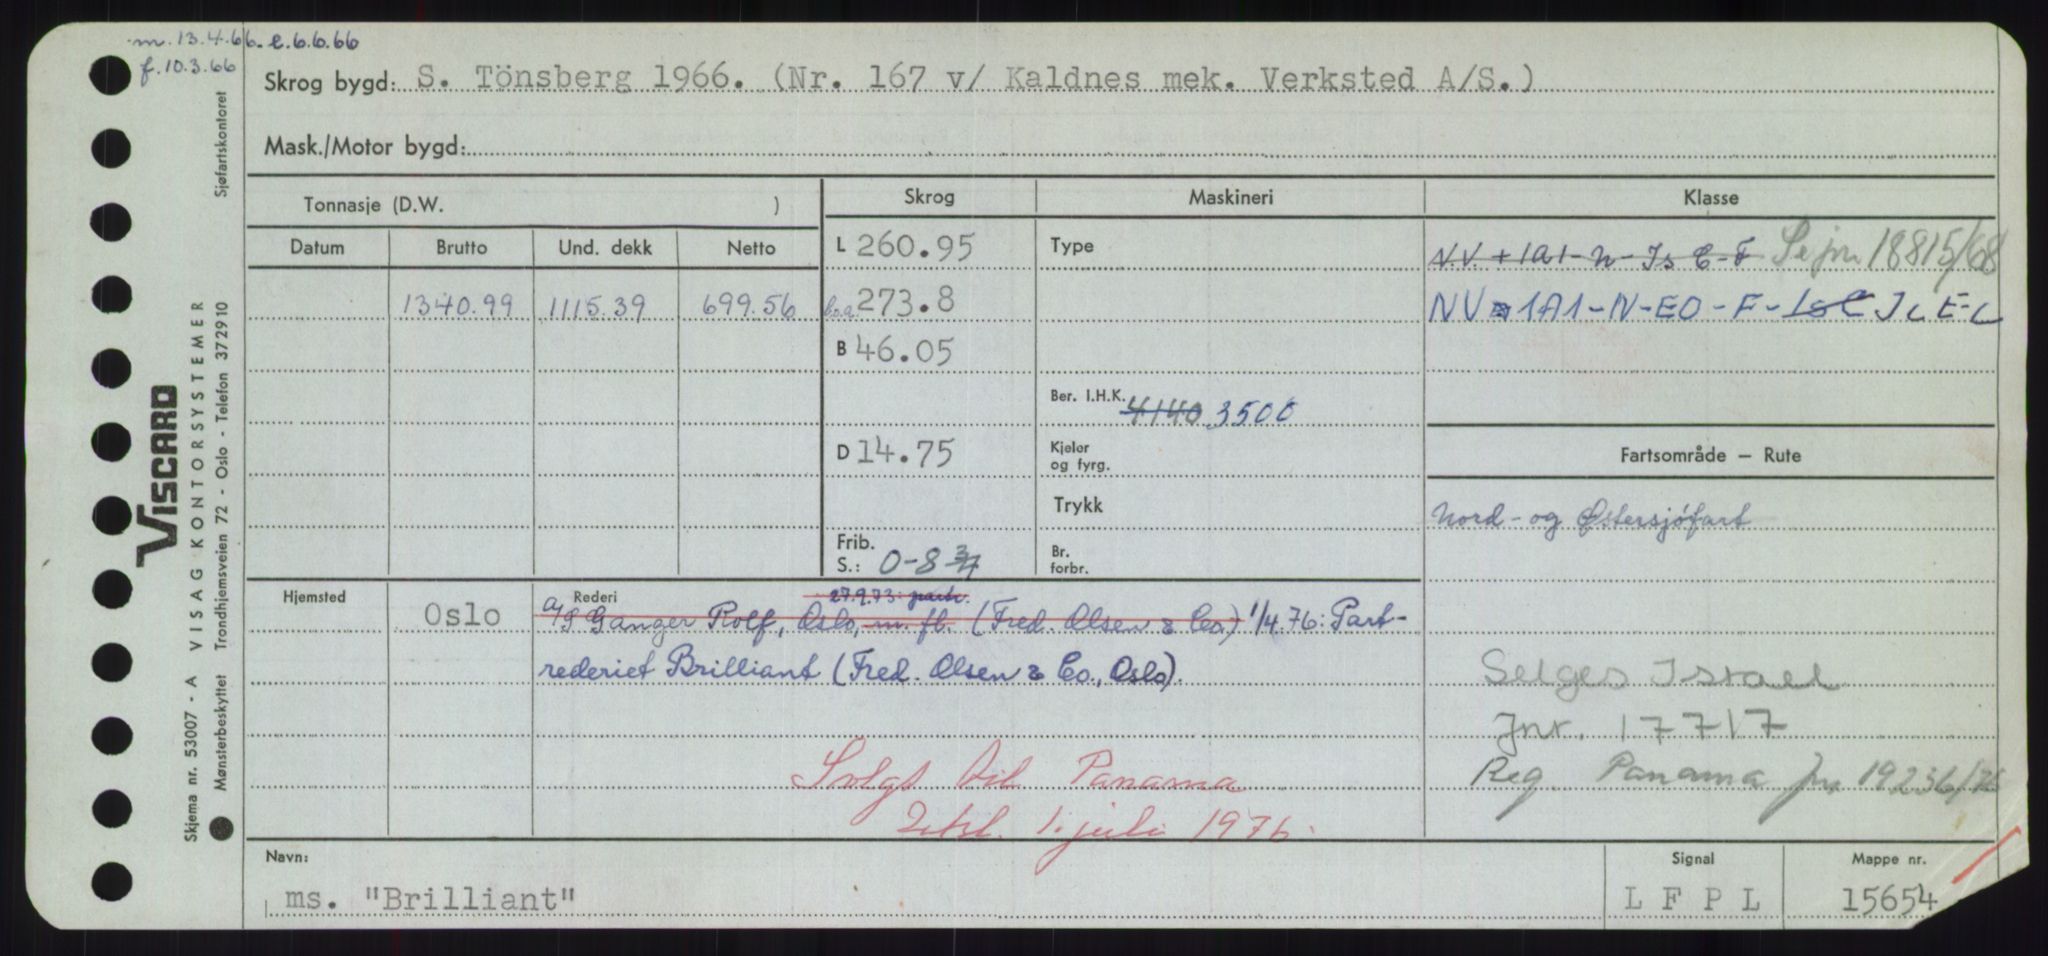 m. 13.4.66. e.6.6.66
f.10.3.66
Skrog bygd: S. Tönsberg 1966. (Nr. 167 v/ Kaldnes mek. Verksted A/S.)
Mask./Motor bygd:
Tonnasje (D.W. )
Skrog Maskineri Klasse
Datum Brutto Und. dekk Netto
L 260.95 Type N.V. + 1A1-N-Is C-F Se jnr 18815/68
1340.99 1115.39 699.56 l.o.a. 273.8 NV 1A1-N-EO-F-IsC
B 46.05
Ber. I.H.K. 4140 3500
D 14.75 Kjeler og fyrg. Fartsområde – Rute
Trykk Nord- og Østersjøfart
Frib. S.: 0-8 Br. forbr.
Hjemsted Oslo Rederi 27.9.73: partr.
A/S Ganger Rolf, Oslo, m. fl. (Fred. Olsen & Co.) 1/4.76: Part-
rederiet Brilliant (Fred. Olsen & Co., Oslo).
Selges Israel
Jnr. 17717
Solgt til Panama
Reg. Panama jnr 19236/76
1. juli 1976.
Navn: ms. "Brilliant"
Signal L F P L
Mappe nr. 15654
Sjøfartskontoret
VISCARD
VISAG KONTORSYSTEMER
Trondhjemsveien 72 - Oslo - Telefon 372910
Skjema nr. 53007 - A
Mønsterbeskyttet